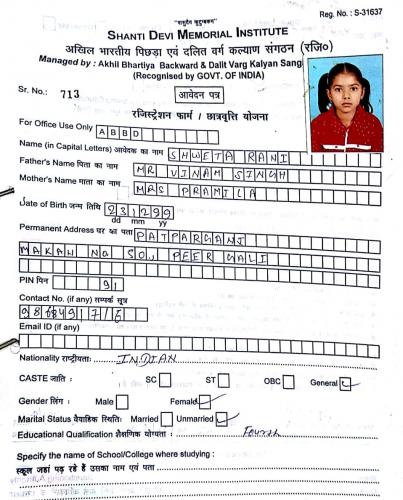 "वसुदैव कुटुम्बकम्"
Reg. No. : S-31637
SHANTI DEVI MEMORIAL INSTITUTE
अखिल भारतीय पिछड़ा एवं दलित वर्ग कल्याण संगठन (रजि०)
Managed by : Akhil Bhartiya Backward & Dalit Varg Kalyan Sang
(Recognised by GOVT. OF INDIA)
Sr. No.: 713
आवेदन पत्र
रजिस्ट्रेशन फार्म / छात्रवृत्ति योजना
For Office Use Only ABBD
Name (in Capital Letters) आवेदक का नाम SHWETA RANI
Father's Name पिता का नाम MR VINAM SINGH
Mother's Name माता का नाम MRS PRAMILA
Date of Birth जन्म तिथि 231299
dd mm yy
Permanent Address घर का पता PATPARGANJ
MAKAN NO 50, PEER GALI
PIN पिन 91
Contact No. (if any) सम्पर्क सूत्र
Email ID (if any)
Nationality राष्ट्रीयताः INDIAN
CASTE जाति : SC ST OBC General
Gender लिंग : Male Female
Marital Status वैवाहिक स्थिति: Married Unmarried
Educational Qualification शैक्षणिक योग्यता : Fourth
Specify the name of School/College where studying :
स्कूल जहां पढ़ रहे हैं उसका नाम एवं पता